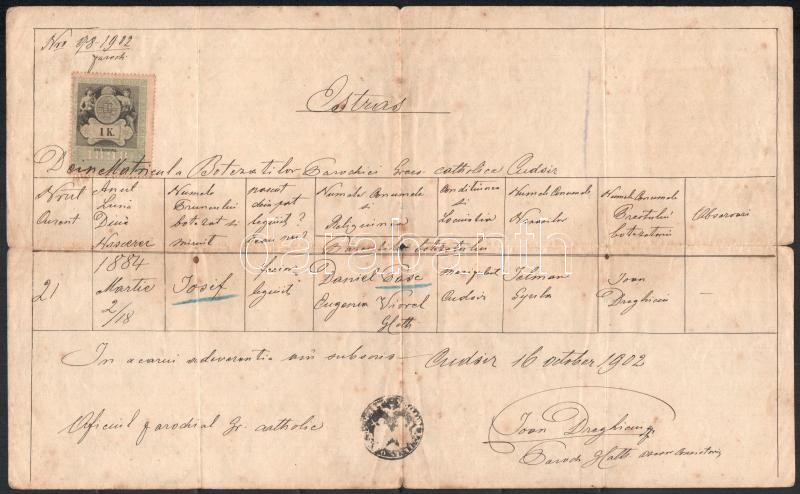 Nro 98-1902
paroch.
1 K.
Estras
Din Matricula Botezatilor Parochiei Greco catholice Cudsir
Nrul Curent
Anul Luna Diua Nascerei
Numele Pruncului botezat si
nascut din pat legiuit? seau ne?
Numele Conumele si Religiunea
Parintilor botezatului
Conditiunea si Locuintia
Numele Conumele Nasilor
Numele Conumele Preotului botezatoriu
Observari
21
1884 Martie 2/18
Iosif
legiuit
Daniel Tase
Eugenia Viorel
G Cath
Cudsir
Ioan Draghiciu
—
carpathia
In a carui adeverentia am subscris Cudsir 16 october 1902
Oficiul parochial gr. catholic
Ioan Draghiciu
Paroch G Cath.